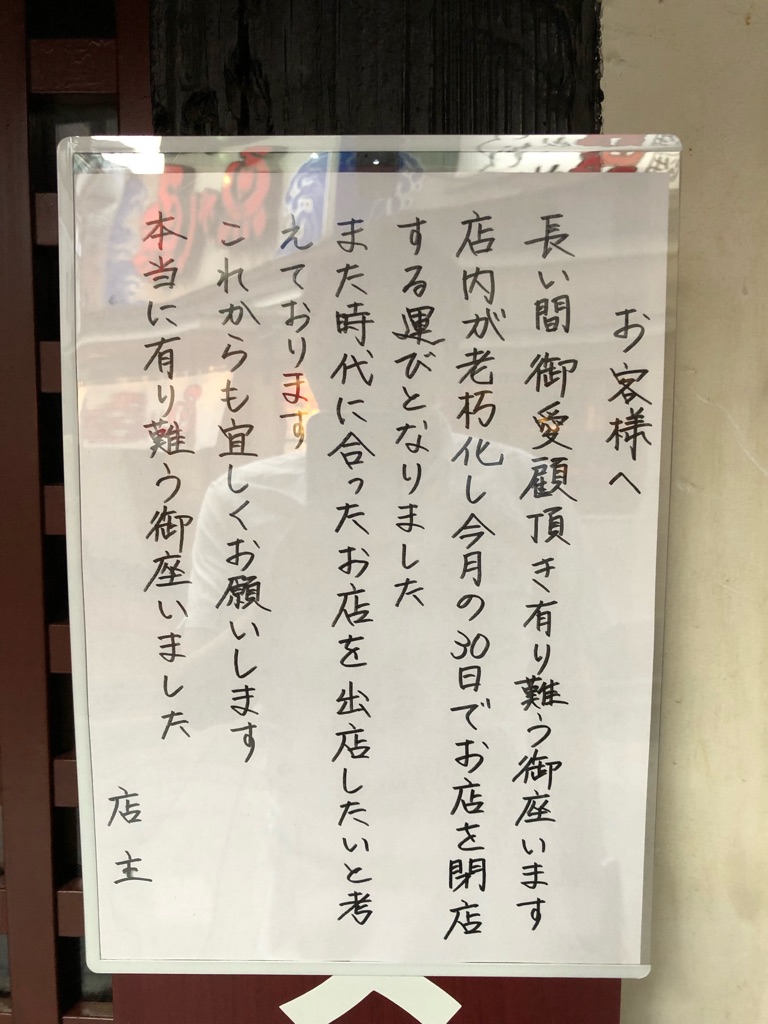 お客様へ
長い間御愛顧頂き有り難う御座います
店内が老朽化し今月の30日でお店を閉店
する運びとなりました
また時代に合ったお店を出店したいと考
えております
これからも宜しくお願いします
本当に有り難う御座いました
店主